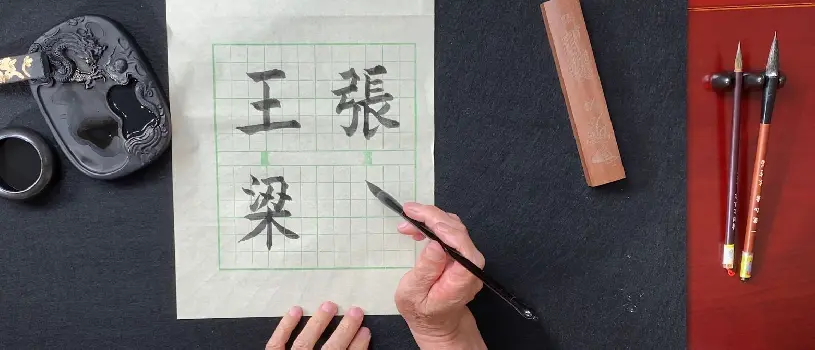 張
王梁